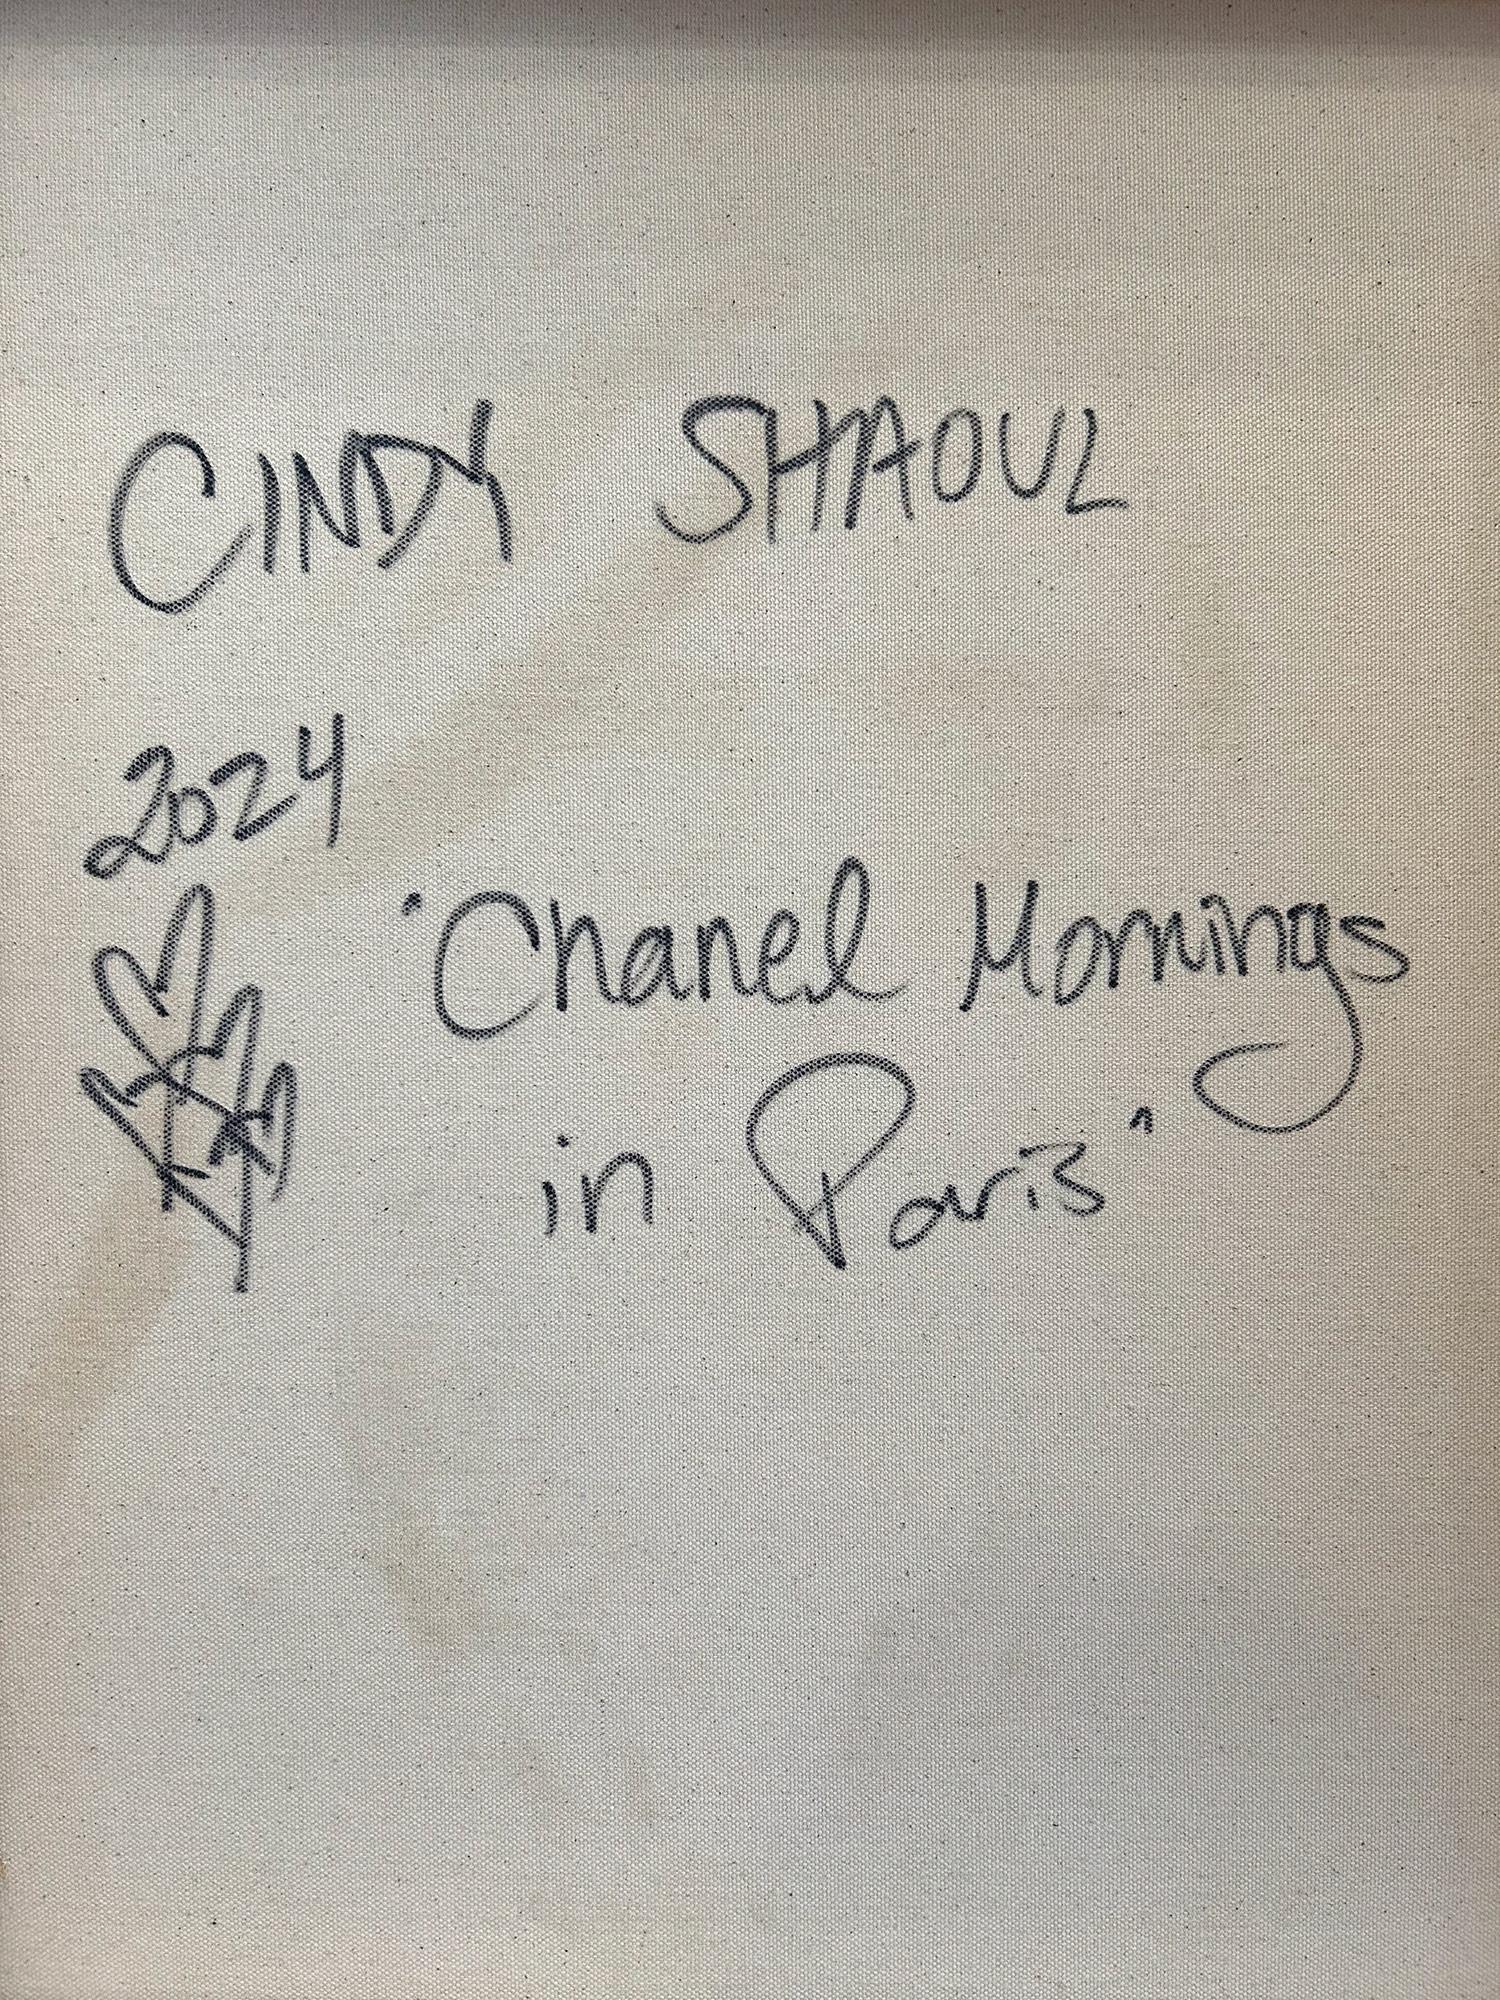 CINDY SHAOUL
2024
"Chanel Mornings
in Paris"